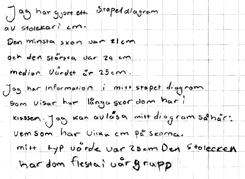 Jag har gjort ett stapeldiagram
av storlekar i cm.
Den minsta skon var 21cm
och den största var 29 cm
median värdet är 25cm.
Jag har information i mitt stapel diagram
som visar hur långa skor dom har i
klassen. Jag kan avläsa mitt diagram så här:
vem som har vilka cm på skorna.
mitt typ värde var 25cm Den storleken
har dom flesta i vår grupp